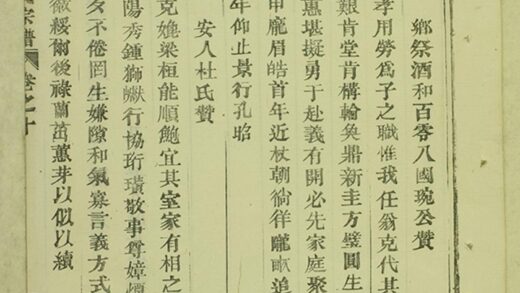 鄉祭酒和百零八國琬公贊
孝用勞爲子之職惟我任翁克代其
艱肯堂肯構輪奐鼎新圭方璧圓生
惠堪擬勇于赴義有開必先家庭聚
申龐眉皓首年近杖朝徜徉隴畝追
年仰止景行孔昭
安人杜氏贊
克媲梁桓能順飽宜其室家有相之
陽秀鍾獅巘行協珩璜敬事尊嫜
夕不倦罔生嫌隙和氣寡言義方式
徽綏爾後祿蘭茁蕙芽以似以續
宗譜 卷之十